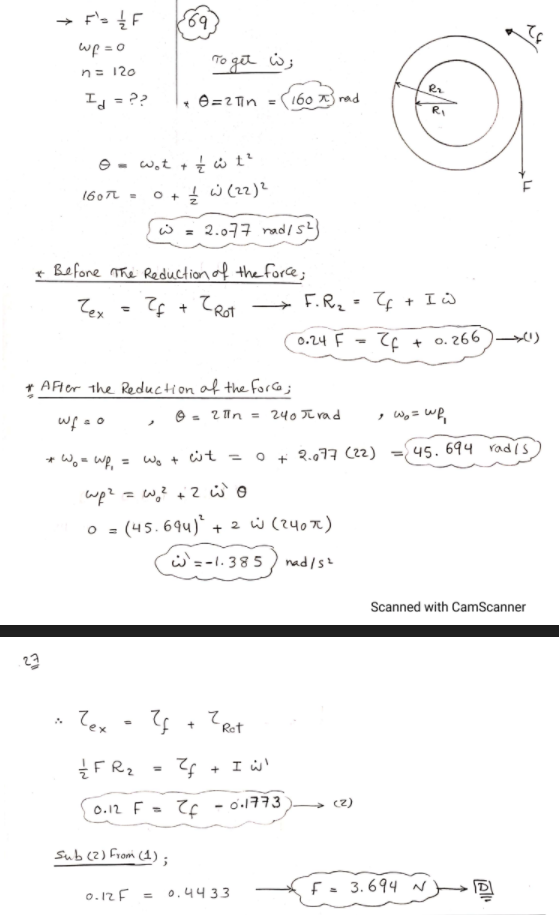 → F' = ½ F
69
ωf = 0
n = 120
I_d = ??
To get ω̇ ;
* θ = 2πn = 160 π rad
τf
R2
R1
F
θ = ω₀t + ½ ω̇ t²
160π = 0 + ½ ω̇ (22)²
ω̇ = 2.077 rad/s²
* Before The Reduction of the force ;
τex = τf + τRot → F.R2 = τf + I ω̇
0.24 F = τf + 0.266 → (1)
* After the Reduction of the force ;
ωf = 0 , θ = 2πn = 240 π rad , ω₀ = ωf₁
* ω₀ = ωf₁ = ω₀ + ω̇t = 0 + 2.077 (22) = 45.694 rad/s
ωf² = ω₀² + 2 ω̇' θ
0 = (45.694)² + 2 ω̇ (240π)
ω̇' = -1.385 rad/s²
Scanned with CamScanner
27
∴ τex = τf + τRot
½ F R2 = τf + I ω̇'
0.12 F = τf - 0.1773 → (2)
Sub (2) From (1) ;
0.12F = 0.4433 → F = 3.694 N → D